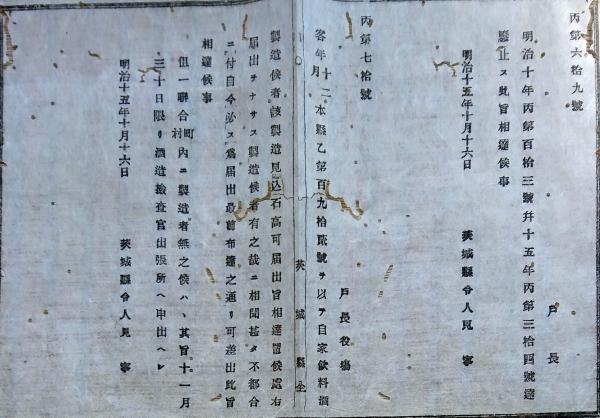 丙第六拾九號
戸長
明治十年丙第百拾三號幷十五年丙第三拾四號達
廢止ス此旨相達候事
明治十五年十月十六日
茨城縣令人見寧
丙第七拾號
戸長役塲
客年十二月本縣乙第百九拾貳號ヲ以テ自家飲料酒
茨城縣
製造候者該製造見込石高可届出旨相達置候處右
届出ヲナサス製造候者有之哉ニ相聞甚タ不都合
ニ付自今必ス爲届出最前布達之通リ可差出此旨
相達候事
但一聯合町村内ニ製造者無之候ハヽ其旨十一月
三十日限リ酒造檢査官出張所ヘ申出ヘシ
明治十五年十月十六日
茨城縣令人見寧